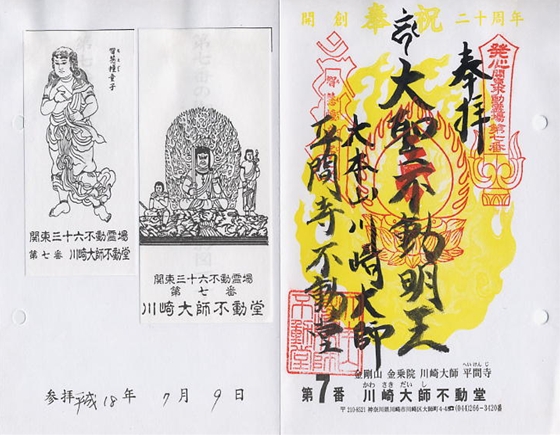 智慧幢童子
関東三十六不動霊場
第七番 川崎大師不動堂
関東三十六不動霊場
第七番
川崎大師不動堂
参拝 平成18年 7月 9日
開創 奉祝 二十周年
奉拝
発心 関東不動霊場 第七番
大聖不動明王
大本山川崎大師
平間寺不動堂
金剛山 金乗院 川崎大師 平間寺
へいけんじ
かわさきだいし
第7番 川崎大師不動堂
〒210-8521 神奈川県川崎市川崎区大師町4-48 (044)266-3420番